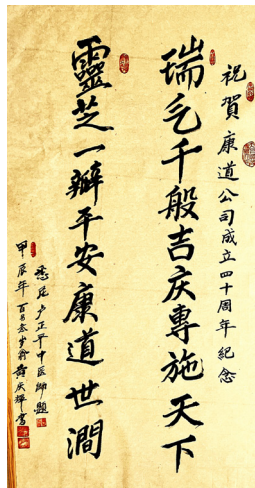 祝賀康道公司成立四十周年紀念
瑞气千般吉庆專施天下
靈芝一瓣平安康道世澗
悉尼卢正平中医師題
甲辰年百岁叁岁翁黄庆輝書